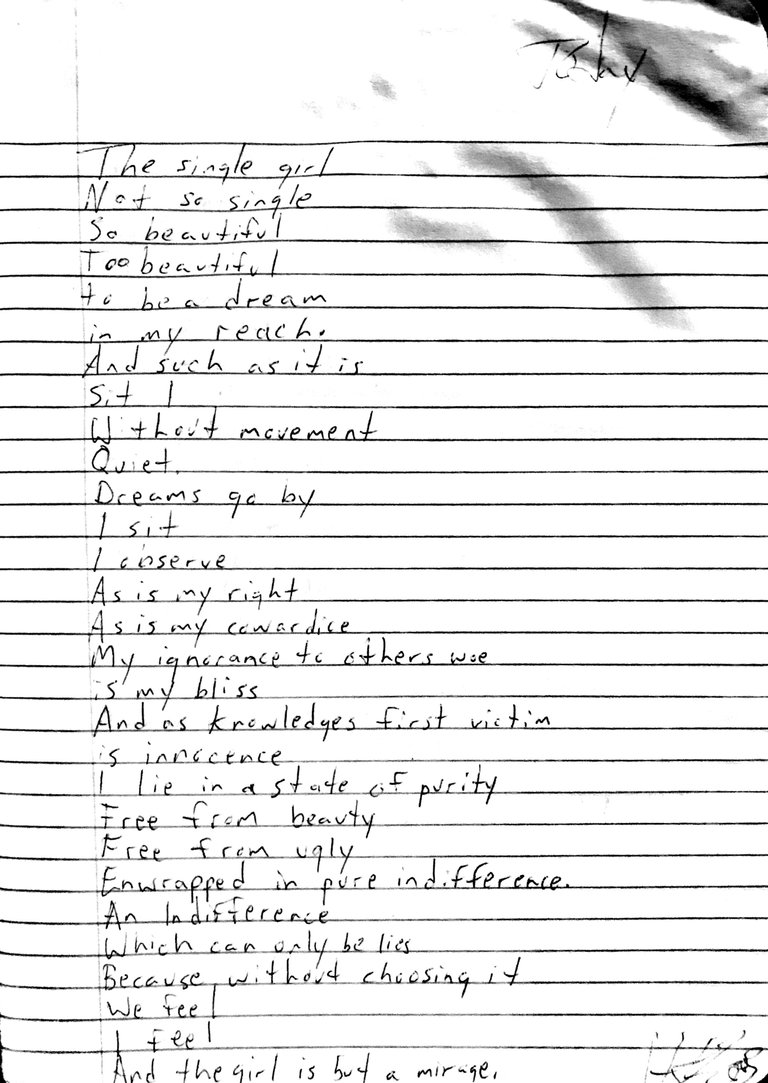 The single girl
Not so single
So beautiful
Too beautiful
to be a dream
in my reach.
And such as it is
Sit I
Without movement
Quiet.
Dreams go by
I sit
I observe
As is my right
As is my cowardice
My ignorance to others woe
is my bliss
And as knowledges first victim
is innocence
I lie in a state of purity
Free from beauty
Free from ugly
Enwrapped in pure indifference.
An Indifference
Which can only be lies
Because, without choosing it
We feel
I feel
And the girl is but a mirage.